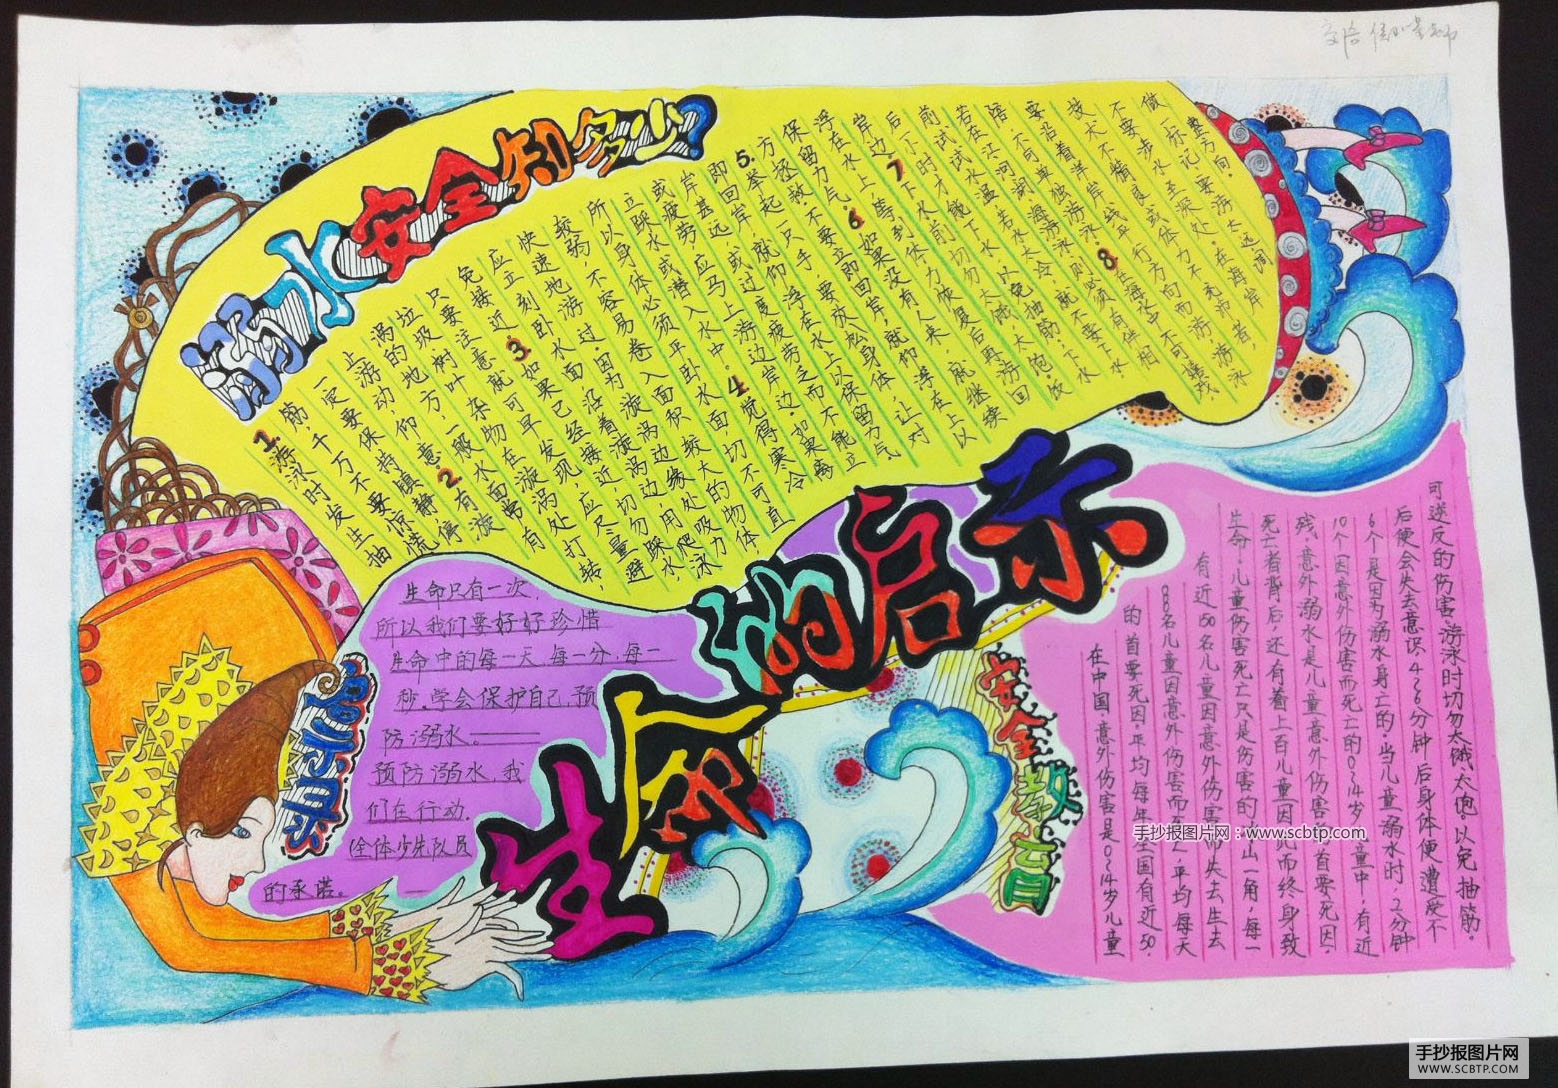 生命的启示
溺水安全知多少?
1.游泳时发生抽
筋,千万不要惊慌
一定要保持镇静,停
止游动,仰
2.有漩
涡的地方一般水面常有
垃圾,树叶杂物在漩涡处打转,
只要注意就可早发现,应尽量避
免接近 3.如果已经接近,切勿踩水,
应立刻卧水面沿着漩涡边用爬泳
快速地游过,因为漩涡边缘处吸力
较弱,不容易卷入面积较大的物体
所以身体必须平卧水面,切不可直
立踩水或潜入水中。4.觉得寒冷
或疲劳,应马上游边岸边.如果离
岸甚远,或过度疲劳而不能立
即回岸,就仰浮在水上以保留力气
5.举起一只手,要放松身体,让对
方拯救,不要立即回岸,就仰浮在上以
保留力气 6 如果没有人来,就继续
浮在水上等到体力恢复后再游回
岸边 7 下水前切勿太饿,太饱,饭
后一小时才能下水,以免抽筋,下水
前试试水温,若水太冷,就不要下水
若在江河湖海游泳则必须有伴相
陪,不可单独游泳 8 在海中不可
要沿着岸线平行方向而游,游泳
技术不精良或体力不充沛者,
不要涉水至深处.在海岸
做一标记,要游太远调
整方向
警示录
生命只有一次,
所以我们要好好珍惜
生命中的每一天,每一分,每一
秒。学会保护自己,预
防溺水。
预防溺水,我
们在行动.
全体少先队员
的承诺。
安全教育
在中国,意外伤害是0-14岁儿童
的首要死因.平均每年全国有近50.
000名儿童因意外伤害而死亡,平均每天
有近150名儿童因意外伤害而失去生去
生命.儿童伤害死亡只是伤害的冰山一角,每一
死亡者背后,还有着上百儿童因此而终身致
残,意外溺水是儿童意外伤害首要死因,
10个因意外伤害而死亡的0-14岁儿童中,有近
6个是因为溺水身亡的,当儿童溺水时,2分钟
后便会失去意识,4-6分钟后身体便遭受不
可逆反的伤害,游泳时切勿太饿太饱,以免抽筋。
手抄报图片网:www.scbtp.com
手抄报图片网
WWW.SCBTP.COM